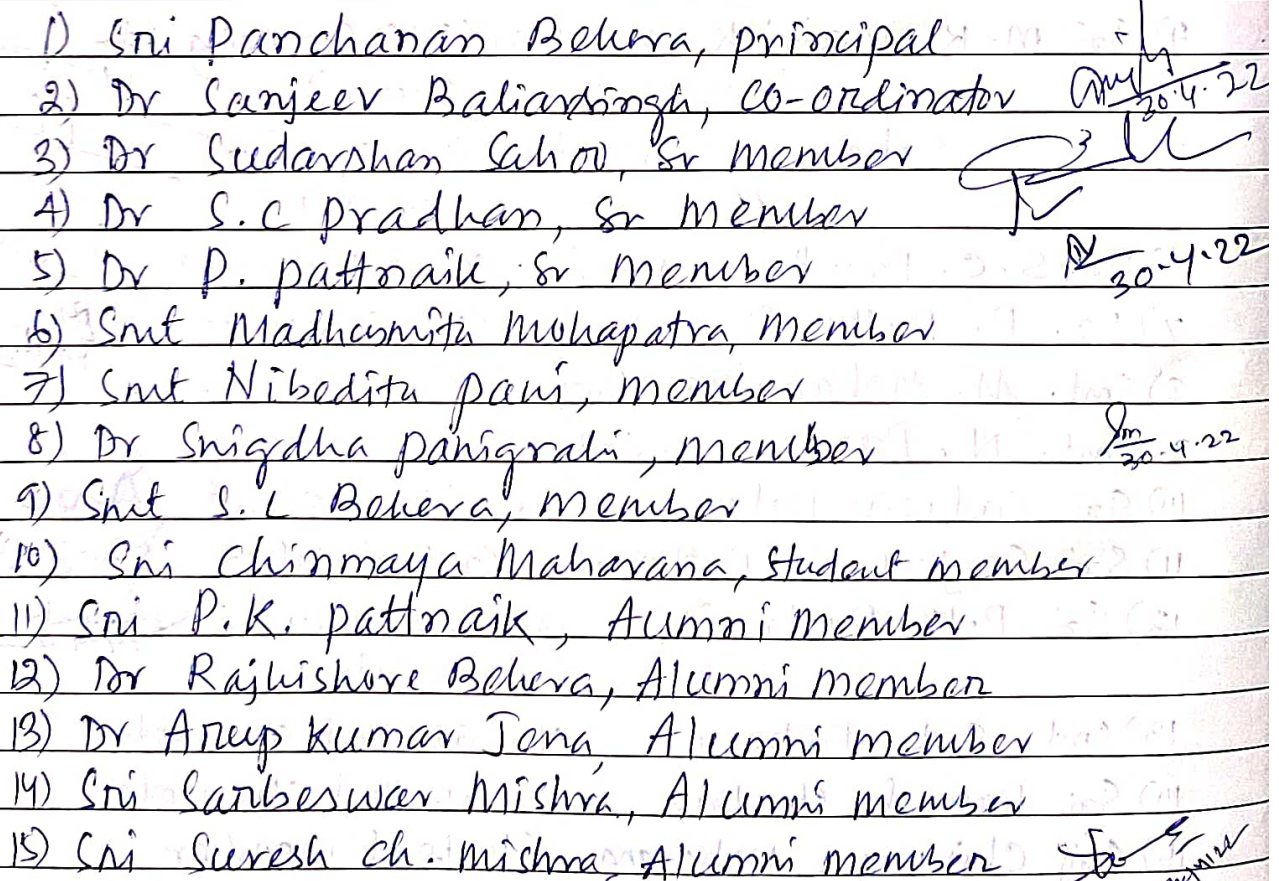 1) Sri Panchanan Behera, principal
2) Dr Sanjeev Baliarsingh, co-ordinator 30.4.22
3) Dr Sudarshan Sahoo, Sr member
4) Dr S.C pradhan, Sr member
5) Dr P. pattnaik, Sr member 30.4.22
6) Smt Madhusmita Mohapatra, member
7) Smt Nibedita pani, member
8) Dr Snigdha panigrahi, member 30.4.22
9) Smt S.L Behera, member
10) Sri Chinmaya Maharana, Student member
11) Sri P.K. pattnaik, Aumni member
12) Dr Rajkishore Behera, Alumni member
13) Dr Anup Kumar Jena, Alumni member
14) Sri Sarbeswar Mishra, Alumni member
15) Sri Suresh ch. mishra, Alumni member